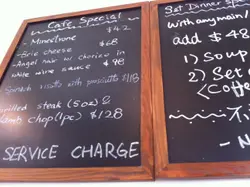 Cafe Special
- Minestrone $42
- Brie cheese $68
- Angel hair w/ chorizo in
white wine sauce $98
- Spinach risotto with prosciutto $118
Grilled steak (5oz) &
Lamb chop (1pc) $128
SERVICE CHARGE
Set Dinner
with any main
add $48
1) Soup
2) Set